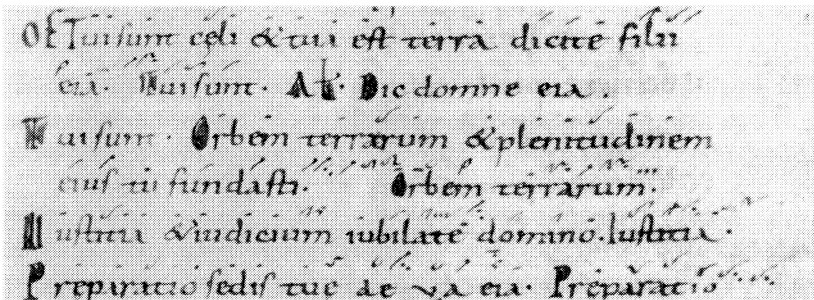 OF Tui sunt cęli & tua est terra dicite filii
eia. Tui sunt. At. Dic domne eia.
Tui sunt. Orbem terrarum & plenitudinem
eius tu fundasti. Orbem terrarum.
Iustitia & iudicium iubilate domino. Iustitia.
Pręparatio sedis tuę ae va eia. Pręparatio